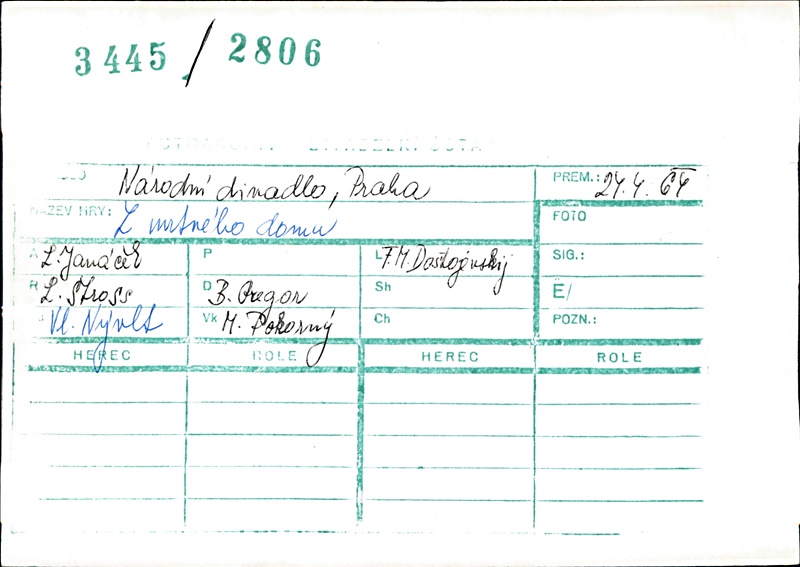 3445 / 2806
Národní divadlo, Praha
PREM.: 24.4.64
NÁZEV HRY: Z mrtvého domu
FOTO
A L. Janáček P L F. M. Dostojevskij SIG.:
R L. Štros D B. Gregor Sh Ë/
Vl. Nývlt Vk M. Pokorný Ch POZN.:
HEREC ROLE HEREC ROLE